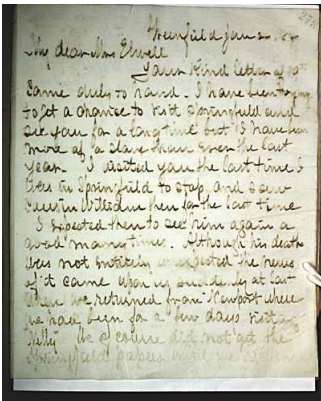 Greenfield Jan
My dear Mrs Elwell
Your kind letter of 19th
came duly to hand. I have been trying
to get a chance to visit Springfield and
see you for a long time but I have been
more of a slave than ever the last
year. I visited you the last time I
was in Springfield to stop, and saw
William then for the last time
I expected then to see him again a
good many times. Although his death
was not entirely unexpected the news
of it came upon us suddenly at last
When we returned from Newport where
we had been for a few days visiting
Nelly. We of course did not get the
Springfield papers until we